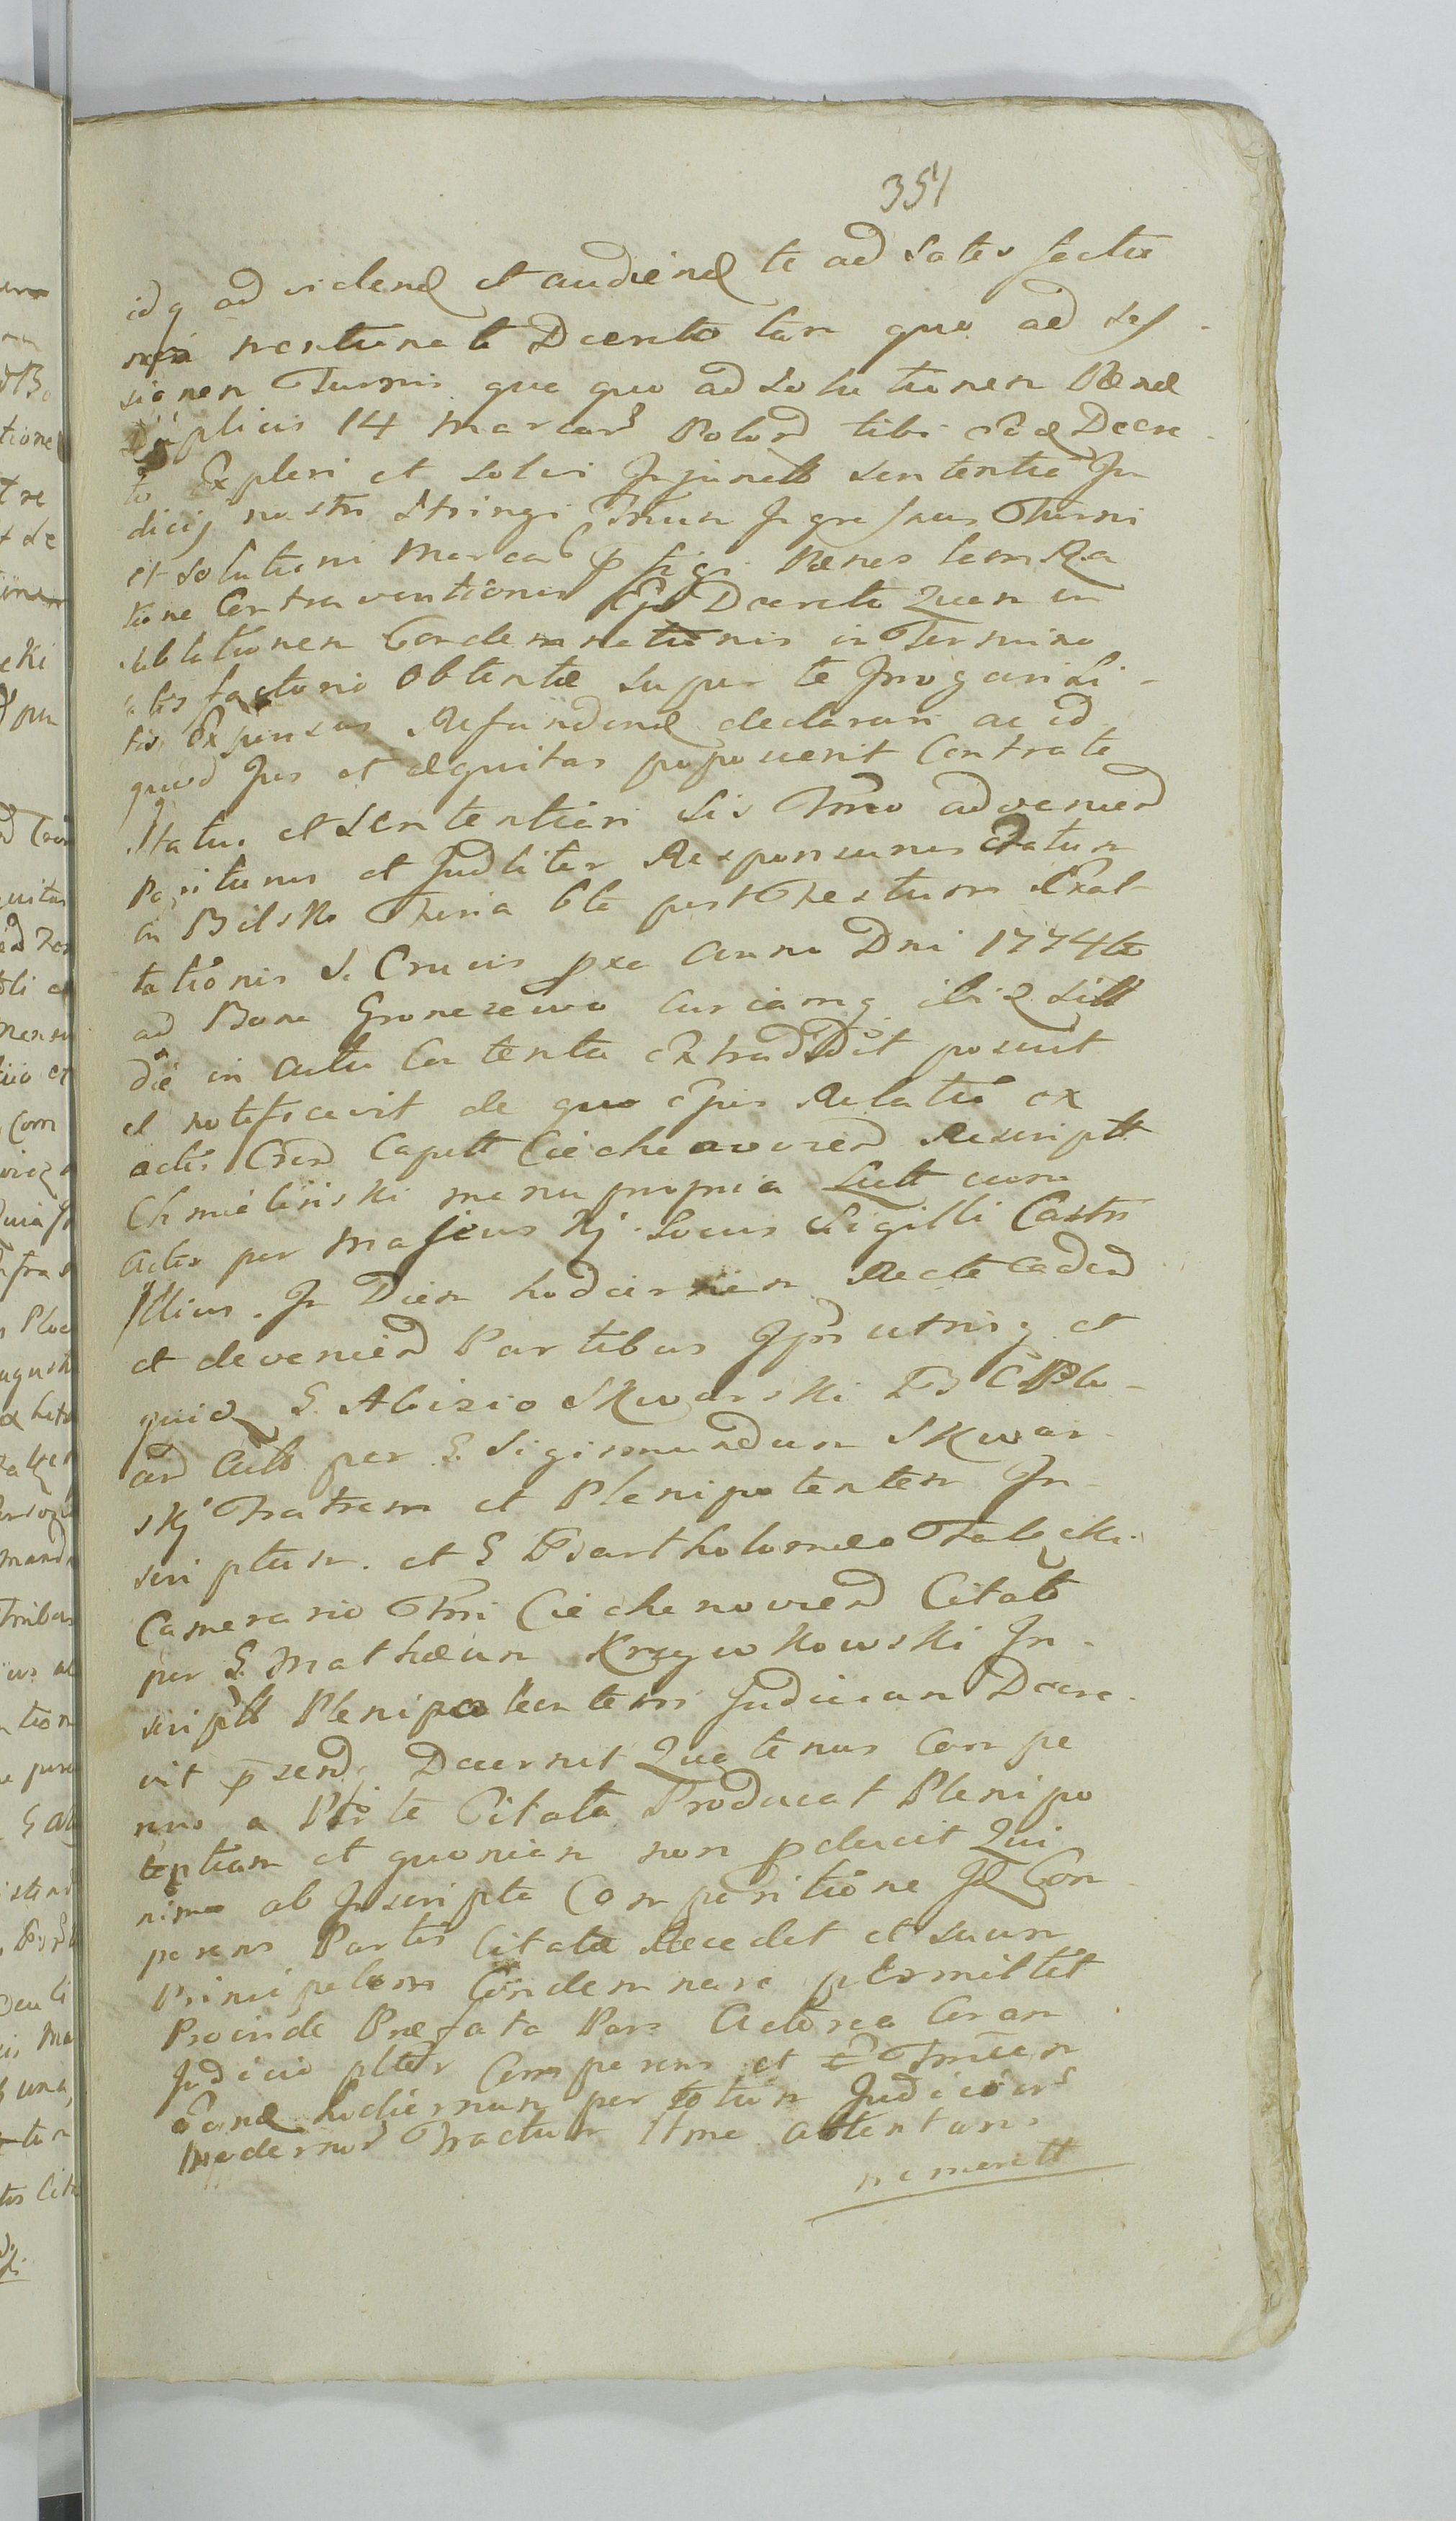 351
idq ad videnđ et audienđ te ad satis factio
mentionato Decreto tam quo ad ses-
sionem Turris que quo ad solutionem Pænæ
14 Marcarˢ Polonˢ tibi eođ Decre-
to Expleri et solvi Injunctt sententia Ju
dicij nostri stringi Tmum Ingressus Turri
et solutioni Marcar p figi Pænas tem Ra
tione Contraventionis Decreto Quam in
sublationem Condemnationis in Termino
satisfactorio Obtentæ super te Irrogari Li-
tis Expensas Refundenđ declarari ac id
quod Jus et æquitas poposcerit Contra te
Statui et sententiari sis Tmo advenienđ
Pariturus et Judliter Responsurus Datum
in Bilsko Feria 6ta post Festum Exal-
tationis S. Crucis pxa Anno Dni 1774to
ad Bona Gronczewo curiamq ibiđ sitt
die in actu Contenta Extradidit posuit
et notificavit de quo Ejus Relatio ex
actis Cren Capitt Ciechanovien Rescriptt
Chmieliński manu propria Lectt cum
actis per Majewskj Locus Sigilli Castri
Illius. In Diem hodiernam Recte cadenđ
et devenienđ Partibus Ipsis utrisq et
quiđ G. Aloizio Skwarski
Actt per G. Sigismundum Skwar-
skj Fratrem et Plenipotentem In-
scriptum. et G Bartholomeo Fabęcki
Camerario Tmi Ciechanovien Citatt
per G. Mathæum Krzywkowski In-
scriptt Plenipotentem Judicium Decre-
vit pzend. Decernit Quatenus Compa
rens a Parte Citata Producat Plenipo
tentiam et quoniam non pducit Qui
nimo ab Inscripta Comparitione Iđ Com-
parens Partis Citatæ Recedet et suum
Principalem Condemnare permittet
Proinde Præfata Pars Actorea Coram
Judicio pltter Comparens et Tmum
Eunđ hodiernum per totum Judiciorˢ
Modernorˢ Tractum Itme attentans
ne merett